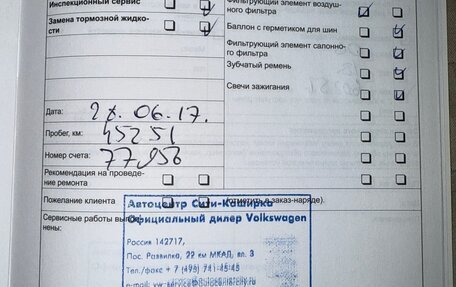 Инспекционный сервис
Замена тормозной жидко-
сти
Фильтрующий элемент воздуш-
ного фильтра
Баллон с герметиком для шин
Фильтрующий элемент салонно-
го фильтра
Зубчатый ремень
Свечи зажигания
Дата: 06.17.
Пробег, км: 45251
Номер счета: 77956
Рекомендация на проведе-
ние ремонта
Пожелание клиента (отметить в заказ-наряде).
Сервисные работы выпол-
нены:
Автоцентр Сити-Каширка
Официальный дилер Volkswagen
Россия 142717,
Пос. Развилка, 22 км МКАД, вл. 3
Тел./факс + 7 (495) 741-45-45
e-mail: vw-service@autocentercity.ru